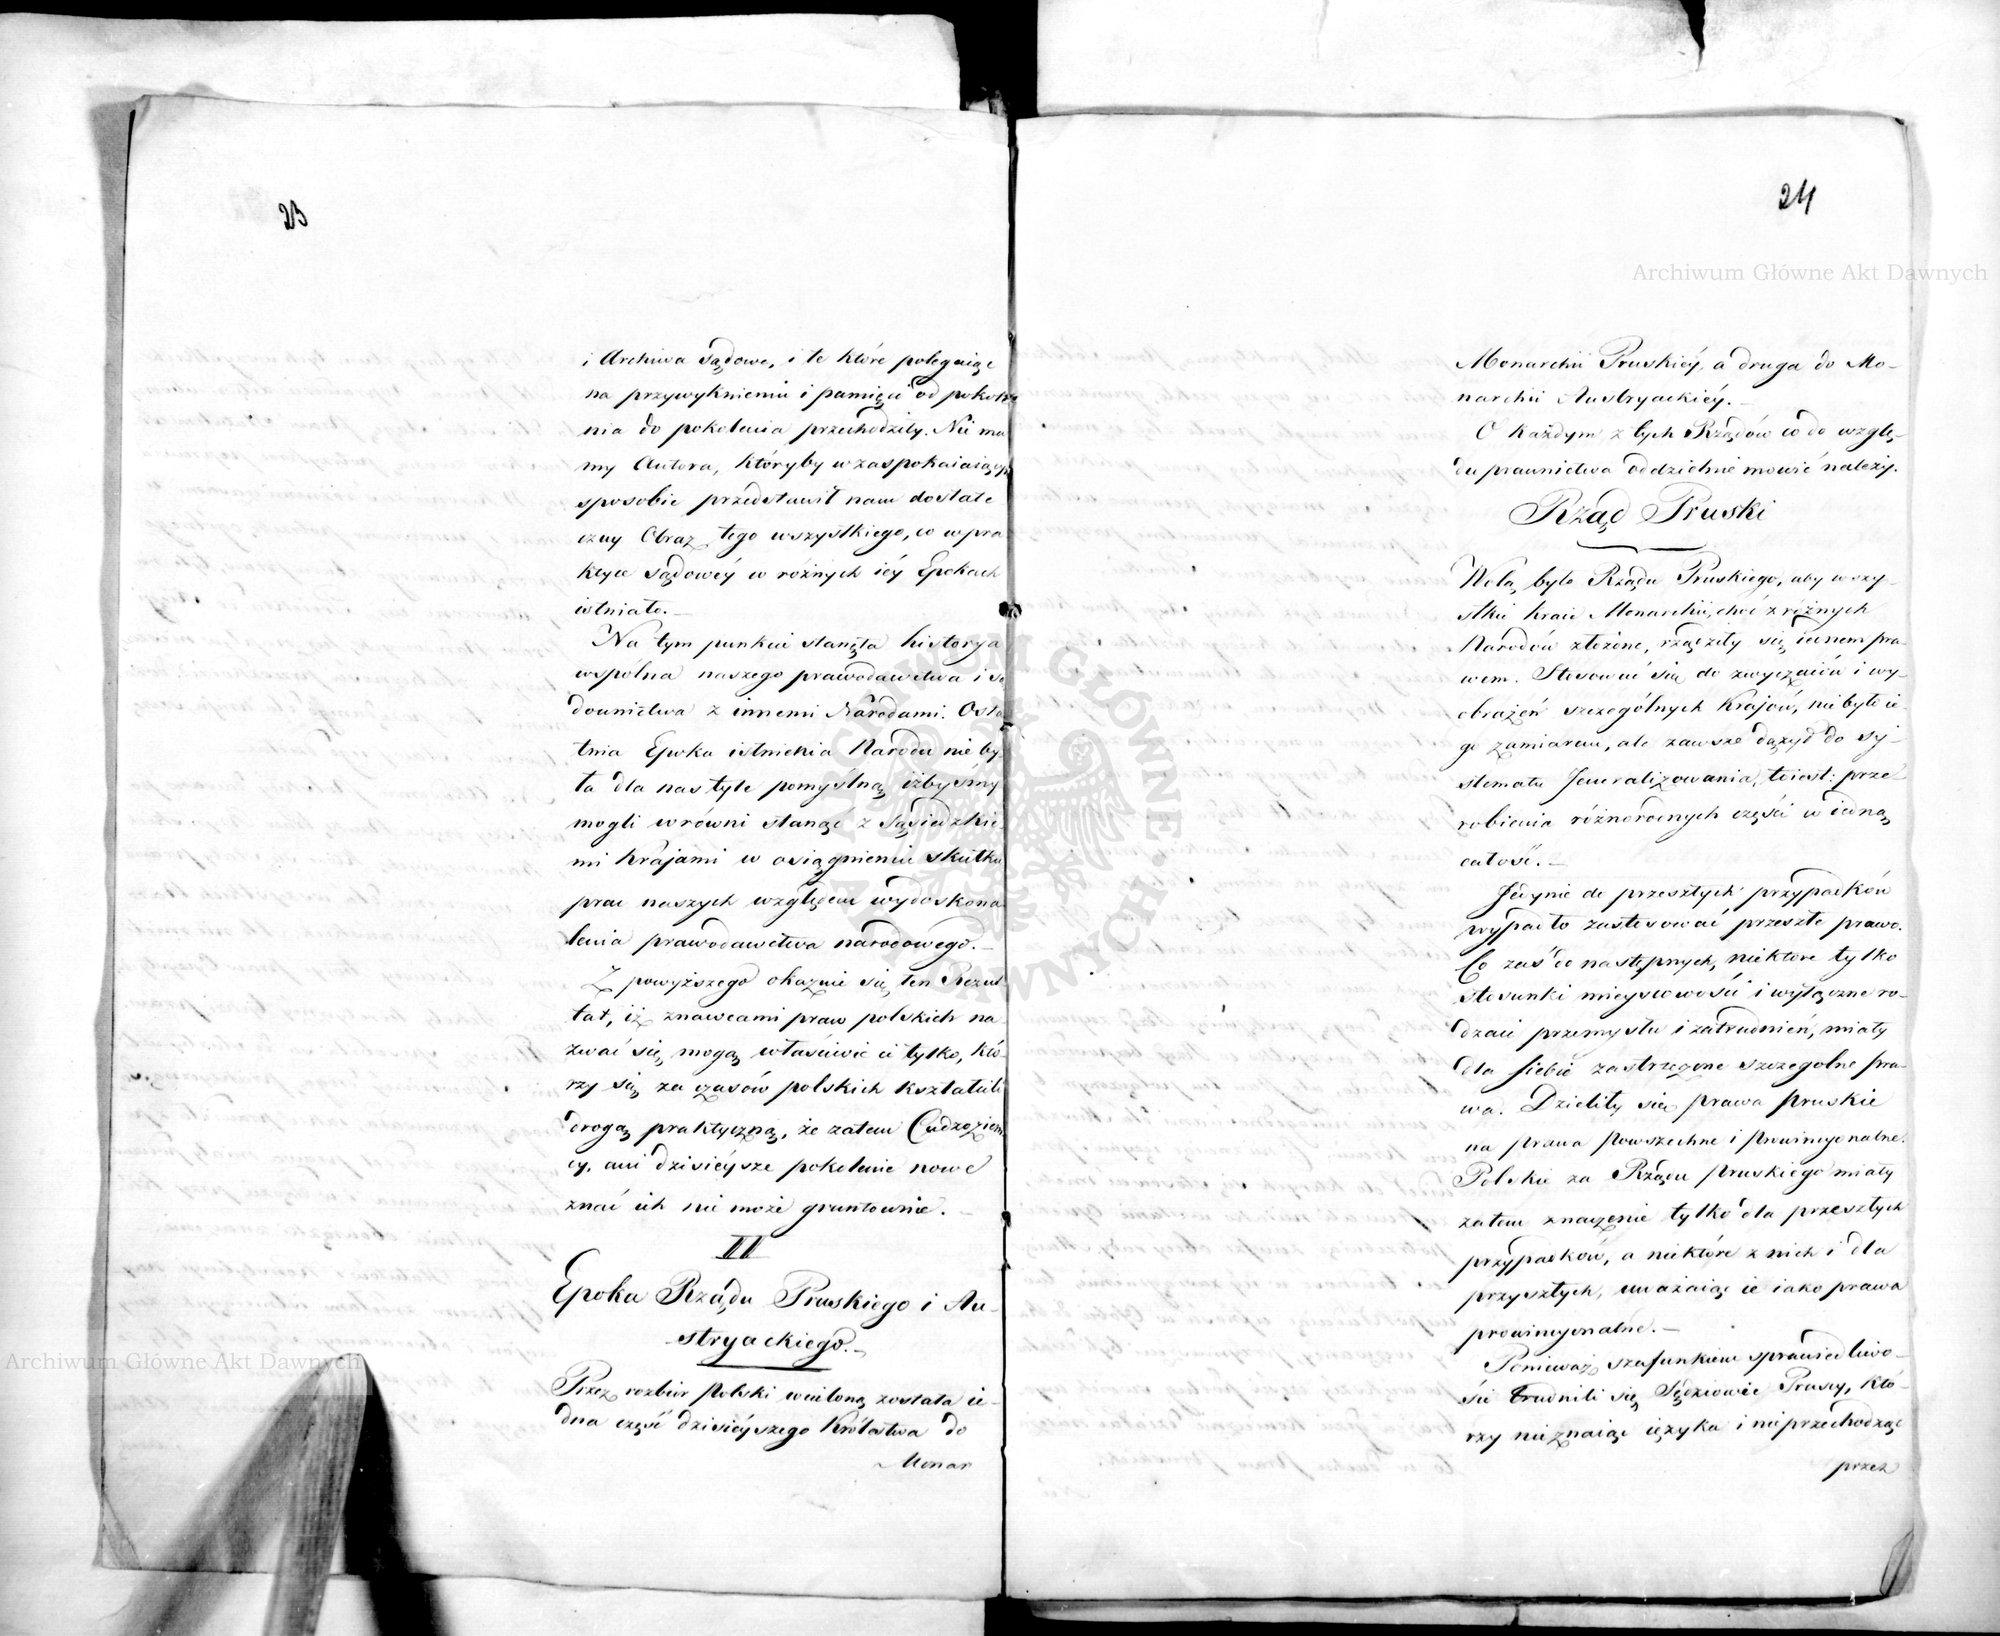 23
i Archiwa sądowe, i te które polegaiąc
na przywyknieniu i pamięci od pokole
nia do pokolenia przechodziły. Nie ma
my Autora, któryby w zaspokaiaiącym
sposobie przedstawił nam dostate
czny Obraz tego wszystkiego, co w pra
ktyce sądowéy w różnych iéy Epokach
istniało.—
Na tym punkcie stanęła historya
wspólna naszego prawodawstwa i są
downictwa z innemi Narodami. Osta
tnia Epoka istnienia Narodu nie by
ła dla nas tyle pomyślną iżbyśmy
mogli w równi stanąć z Sąsiedzkie
mi krajami w osiągnieniu skutku
prac naszych względem wydoskona
lenia prawodawstwa narodowego.—
Z powyższego okazuie się ten Rezul
tat, iż znawcami praw polskich na
zwać się mogą właściwie ci tylko, któ
rzy się za czasów polskich kształcili
drogą praktyczną, że zatem Cudzoziem
cy, ani dzisiéysze pokolenie nowe
znać ich nie może gruntownie.—
II
Epoka Rządu Pruskiego i Au-
stryackiego.—
Przez rozbiór Polski wcieloną została ie-
dna część dzisiéyszego Królestwa do
Monar
24
Monarchii Pruskiéy, a druga do Mo-
narchii Austryackiéy.—
O każdym z tych Rządów co do wzglę-
du prawnictwa oddzielnie mowić należy.
Rząd Pruski
Wolą było Rządu Pruskiego, aby wszy-
stkie kraie Monarchii, choć z różnych
Narodów złożone, rządziły się iednem pra-
wem. Stosować się do zwyczaiów i wy-
obrażeń szczególnych Krajów, nie było ie-
go zamiarem, ale zawsze dążył do sy-
stematu Jeneralizowania, toiest: prze
robienia różnorodnych części w iedną
całość.—
Jedynie do przeszłych przypadków
wypadło zastosować przeszłe prawo.
Co zaś do następnych, niektóre tylko
stosunki mieyscowości i wyłączne ro-
dzaie przemysłu i zatrudnień, miały
dla siebie zastrzeżone szczególne pra-
wa. Dzieliły się prawa pruskie
na prawa Powszechne i prowincyonalne.
Polskie za Rządu pruskiego miały
zatem znaczenie tylko dla przeszłych
przypadków, a niektóre z nich i dla
przyszłych, uważaiąc ie iako prawa
prowincyonalne.—
Ponieważ szafunkiem sprawiedliwo-
ści trudnili się Sędziowie Prusey, któ-
rzy nieznaiąc ięzyka i nieprzechodząc
przez
Archiwum Główne Akt Dawnych
Archiwum Główne Akt Dawnych